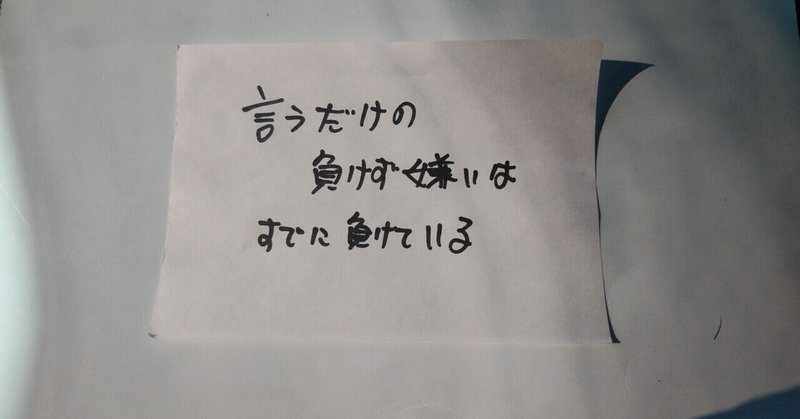 言うだけの
負けず嫌いは
すでに負けている